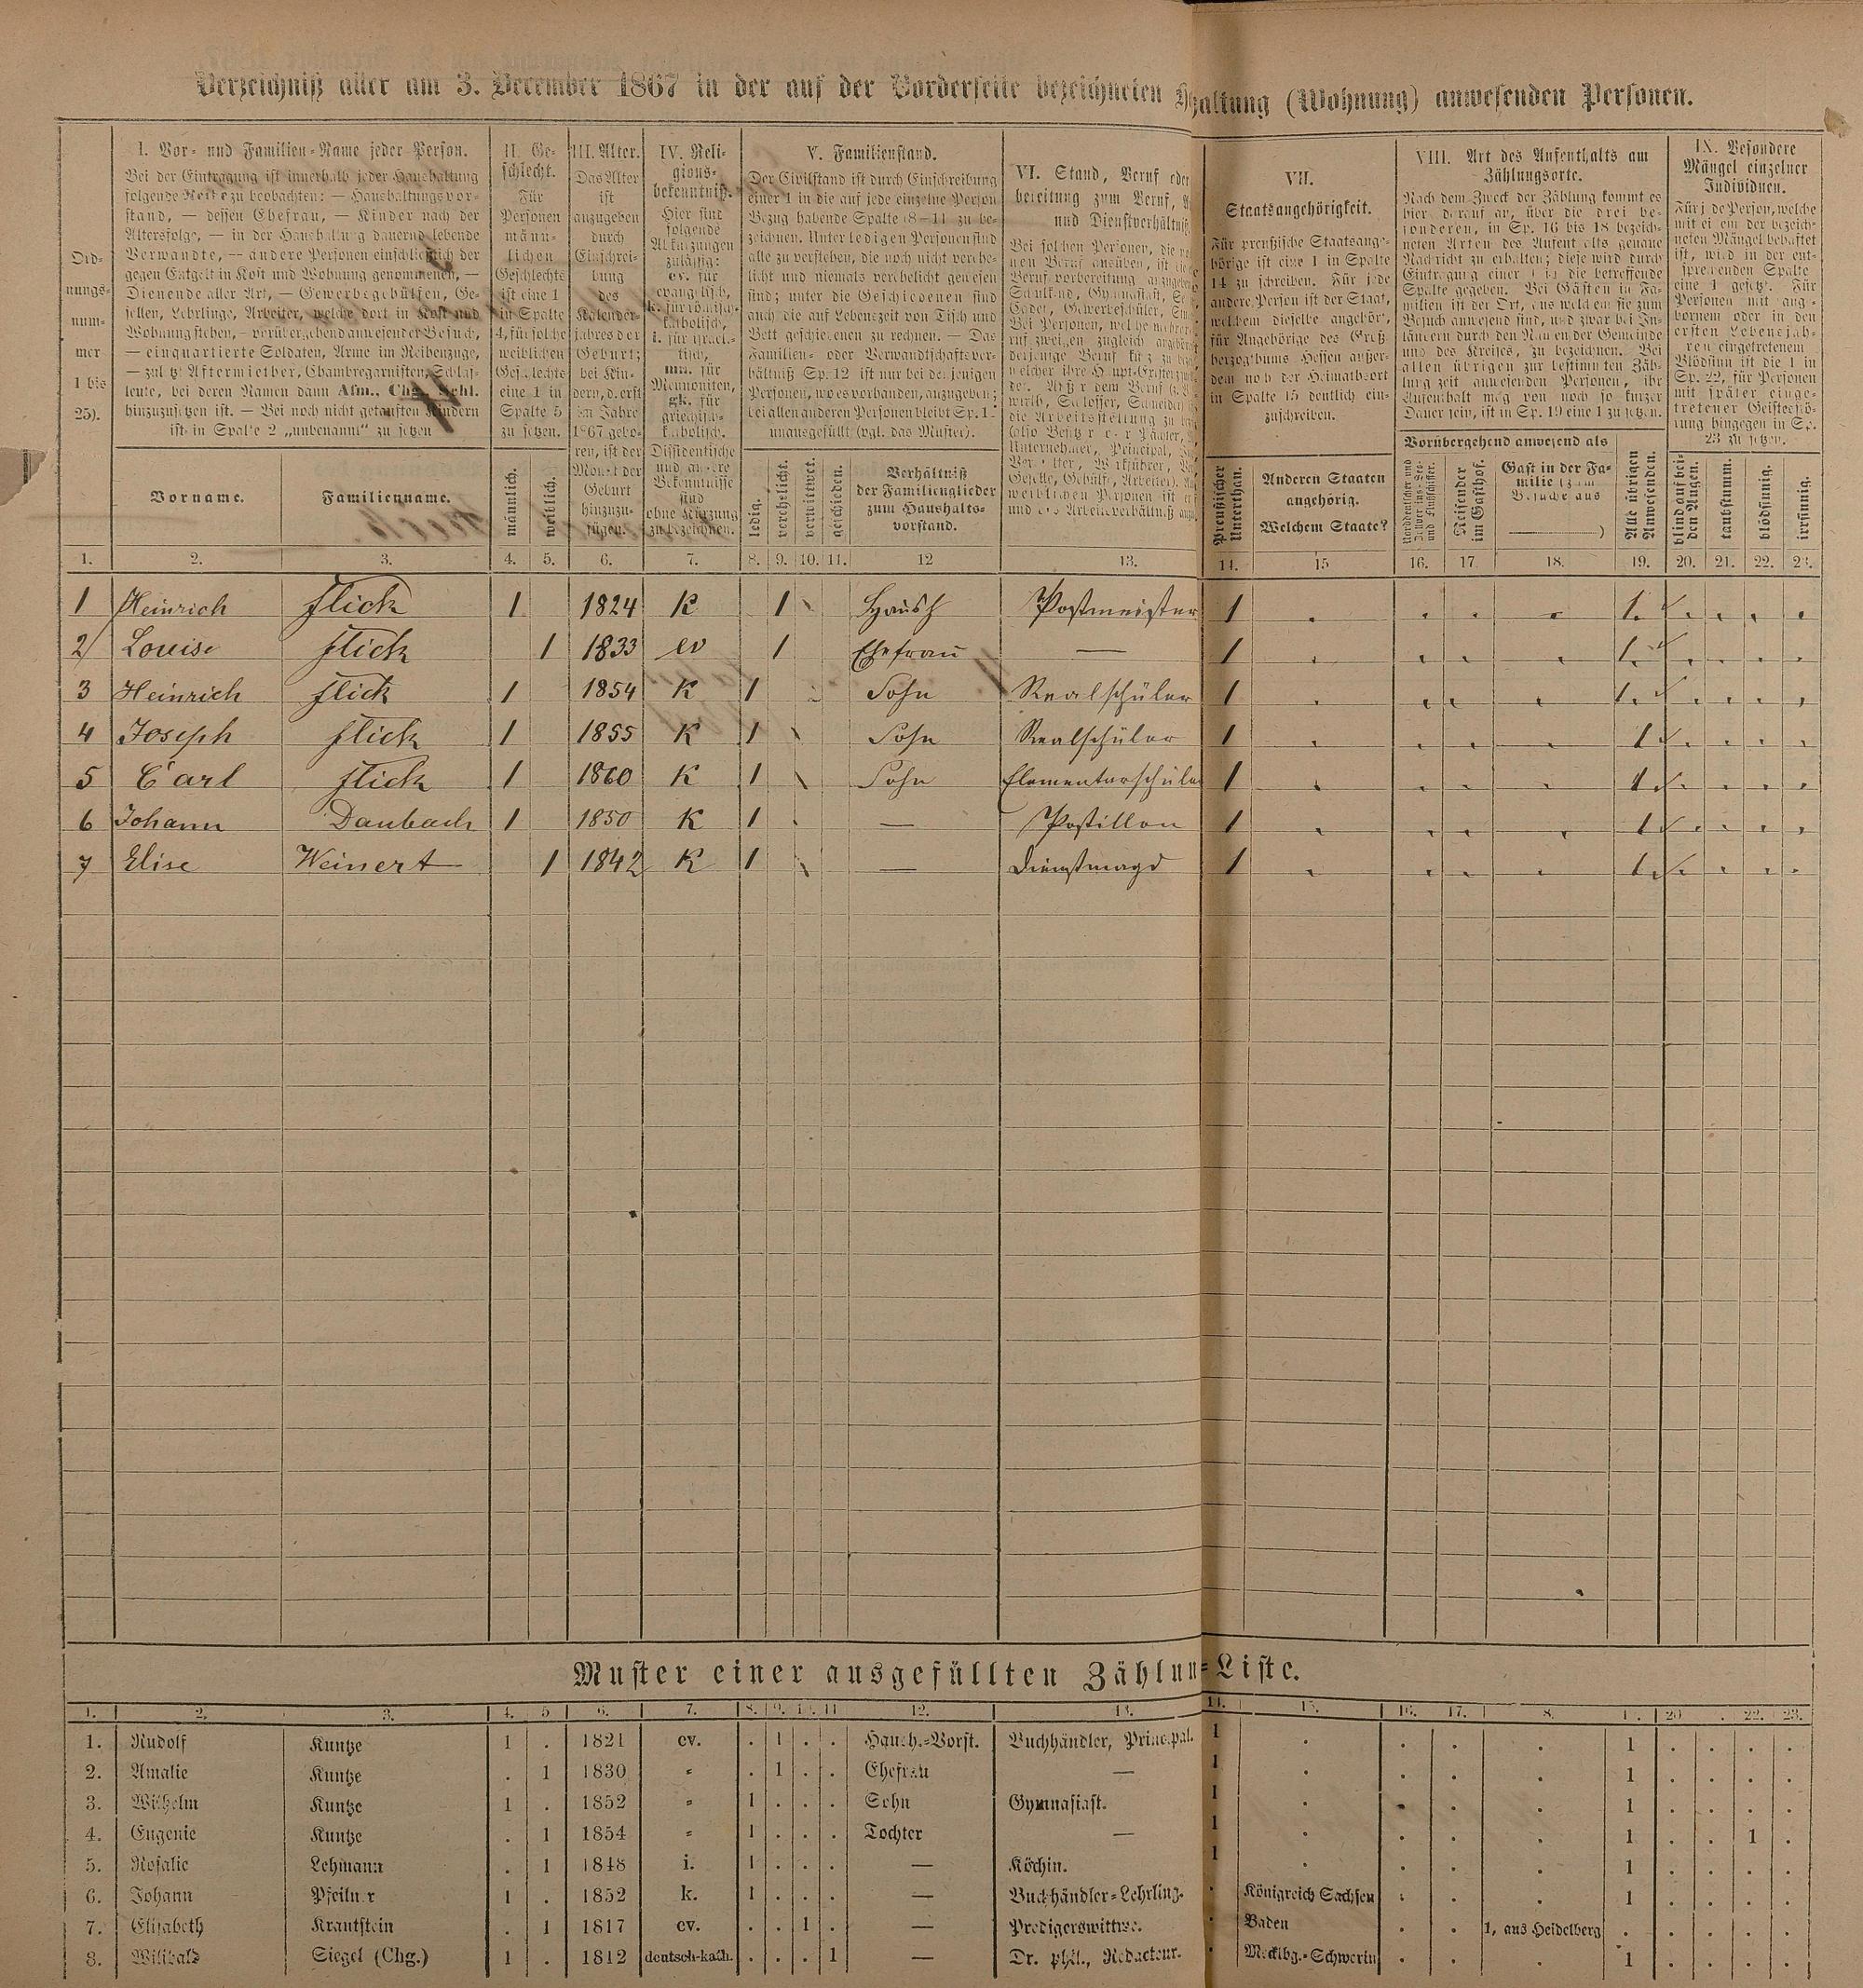 Verzeichniß aller am 3. December 1867 in der auf der Vorderseite bezeichneten haltung (Wohnung) anwesenden Personen.
Ord-
nungs-
num-
mer
1 bis
25).
I. Vor- und Familien-Name jeder Person.
Bei der Eintragung ist innerhalb jeder Haushaltung
folgende Reihe zu beobachten: — Haushaltungsvor-
stand, — dessen Ehefrau, — Kinder nach der
Altersfolge, — in der Haushaltung dauernd lebende
Verwandte, — andere Personen einschließlich der
gegen Entgelt in Kost und Wohnung genommenen, —
Dienende aller Art, — Gewerbegehülfen, Ge-
sellen, Lehrlinge, Arbeiter, welche dort in Kost und
Wohnung stehen, — vorübergehend anwesender Besuch,
— einquartierte Soldaten, Arme im Reihenzuge,
— zuletzt Aftermiether, Chambregarnisten, Schlaf-
leute, bei deren Namen dann Afm., Chg., Schl.
hinzuzusetzen ist. — Bei noch nicht getauften Kindern
ist in Spalte 2 „unbenannt“ zu setzen
Vorname.
Familienname.
II. Ge-
schlecht.
Für
Personen
männ-
lichen
Geschlechts
ist eine 1
in Spalte
4, für solche
weiblichen
Geschlechts
eine 1 in
Spalte 5
zu setzen.
männlich.
weiblich.
III. Alter.
Das Alter
ist
anzugeben
durch
Einschrei-
bung
des
Kalender-
jahres der
Geburt;
bei Kin-
dern, d. erst
im Jahre
1867 gebo-
ren, ist der
Monat der
Geburt
hinzuzu-
fügen.
IV. Reli-
gions-
bekenntniß.
Hier sind
folgende
Abkürzungen
zulässig:
ev. für
evangelisch,
k. für römisch-
katholisch,
i. für israel-
itisch,
mn. für
Mennoniten,
gk. für
griechisch-
katholisch.
Dissidentische
und andere
Bekenntnisse
sind
ohne Kürzung
zu bezeichnen.
V. Familienstand.
Der Civilstand ist durch Einschreibung
einer 1 in die auf jede einzelne Person
Bezug habende Spalte (8—11) zu be-
zeichnen. Unter ledigen Personen sind
alle zu verstehen, die noch nicht verehe-
licht und niemals verehelicht gewesen
sind; unter die Geschiedenen sind
auch die auf Lebenszeit von Tisch und
Bett geschiedenen zu rechnen. — Das
Familien- oder Verwandtschaftsver-
hältniß Sp. 12 ist nur bei denjenigen
Personen, wo es vorhanden, anzugeben;
bei allen anderen Personen bleibt Sp. 1
unausgefüllt (vgl. das Muster).
ledig.
verehelicht.
verwittwet.
geschieden.
Verhältniß
der Familienglieder
zum Haushalts-
vorstand.
VI. Stand, Beruf oder
bereitung zum Beruf,
und Dienstverhältniß
VII.
Staatsangehörigkeit.
Für preußische Staatsange-
hörige ist eine 1 in Spalte
14 zu schreiben. Für jede
andere Person ist der Staat,
welchem dieselbe angehört,
für Angehörige des Groß-
herzogthums Hessen außer-
dem noch der Heimathsort
in Spalte 15 deutlich ein-
zuschreiben.
Preußischer
Unterthan.
Anderen Staaten
angehörig.
Welchem Staate?
VIII. Art des Aufenthalts am
Zählungsorte.
Nach dem Zweck der Zählung kommt es
hier darauf an, über die drei be-
sonderen, in Sp. 16 bis 18 bezeich-
neten Arten des Aufenthalts genaue
Nachricht zu erhalten; diese wird durch
Eintragung einer 1 in die betreffende
Spalte gegeben. Bei Gästen in Fa-
milien ist der Ort, aus welchem sie zum
Besuch anwesend sind, und zwar bei In-
ländern durch den Namen der Gemeinde
und des Kreises, zu bezeichnen. Bei
allen übrigen zur bestimmten Zäh-
lungszeit anwesenden Personen, ihr
Aufenthalt mag von noch so kurzer
Dauer sein, ist in Sp. 19 eine 1 zu setzen.
Vorübergehend anwesend als
Norddeutscher und
und Flußschiffer.
Reisender
im Gasthof.
Gast in der Fa-
milie (zum
Besuche aus
)
Alle übrigen
Anwesenden.
IX. Besondere
Mängel einzelner
Individuen.
Für jede Person, welche
mit einem der bezeich-
neten Mängel behaftet
ist, wird in der ent-
sprechenden Spalte
eine 1 gesetzt. Für
Personen mit ange-
bornem oder in den
ersten Lebensjah-
ren eingetretenem
Blödsinn ist die 1 in
Sp. 22, für Personen
mit später einge-
tretener Geistesstö-
rung hingegen in Sp.
23 zu setzen.
blind auf bei-
den Augen.
taubstumm.
blödsinnig.
irrsinnig.
1. 2. 3. 4. 5. 6. 7. 8. 9. 10. 11. 12 13. 14. 15 16. 17 18. 19. 20. 21. 22. 23.
1 Heinrich Flick 1 1824 K 1 Haush Postmeister 1 1.
2 Louise Flick 1 1833 ev 1 Ehefrau — 1 1.
3 Heinrich Flick 1 1854 K 1 Sohn Realschüler 1 1.
4 Joseph Flick 1 1855 K 1 Sohn Realschüler 1 1
5 Carl Flick 1 1860 K 1 Sohn Elementarschüler 1 1
6 Johann Daubach 1 1850 K 1 — Postillon 1 1
7 Elise Weinert 1 1842 K 1 — Dienstmagd 1 1
Muster einer ausgefüllten Zählun=Liste.
1. 2. 3. 4. 5 6. 7. 8. 9. 10. 11 12. 13. 14. 15. 16. 17. 8. 1 . 20 . 22. 23.
1. Rudolf Kuntze 1 . 1821 ev. . 1 . . Haush.-Vorst. Buchhändler, Principal. 1 . . . . 1 . . . .
2. Amalie Kuntze . 1 1830 „ . 1 . . Ehefrau — 1 . . . . 1 . . . .
3. Wilhelm Kuntze 1 . 1852 „ 1 . . . Sohn Gymnasiast. 1 . . . . 1 . . . .
4. Eugenie Kuntze . 1 1854 „ 1 . . . Tochter — 1 . . . . 1 . . 1 .
5. Rosalie Lehmann . 1 1848 i. 1 . . . — Köchin. 1 . . . . 1 . . . .
6. Johann Pfeilner 1 . 1852 k. 1 . . . — Buchhändler-Lehrling. . Königreich Sachsen . . . 1 . . . .
7. Elisabeth Krautstein . 1 1817 ev. . . 1 . — Predigerswittwe. . Baden . . 1, aus Heidelberg . . . . .
8. Wilibald Siegel (Chg.) 1 . 1812 deutsch-kath. . . . 1 — Dr. phil., Redacteur. . Mecklbg.-Schwerin . . . 1 . . . .